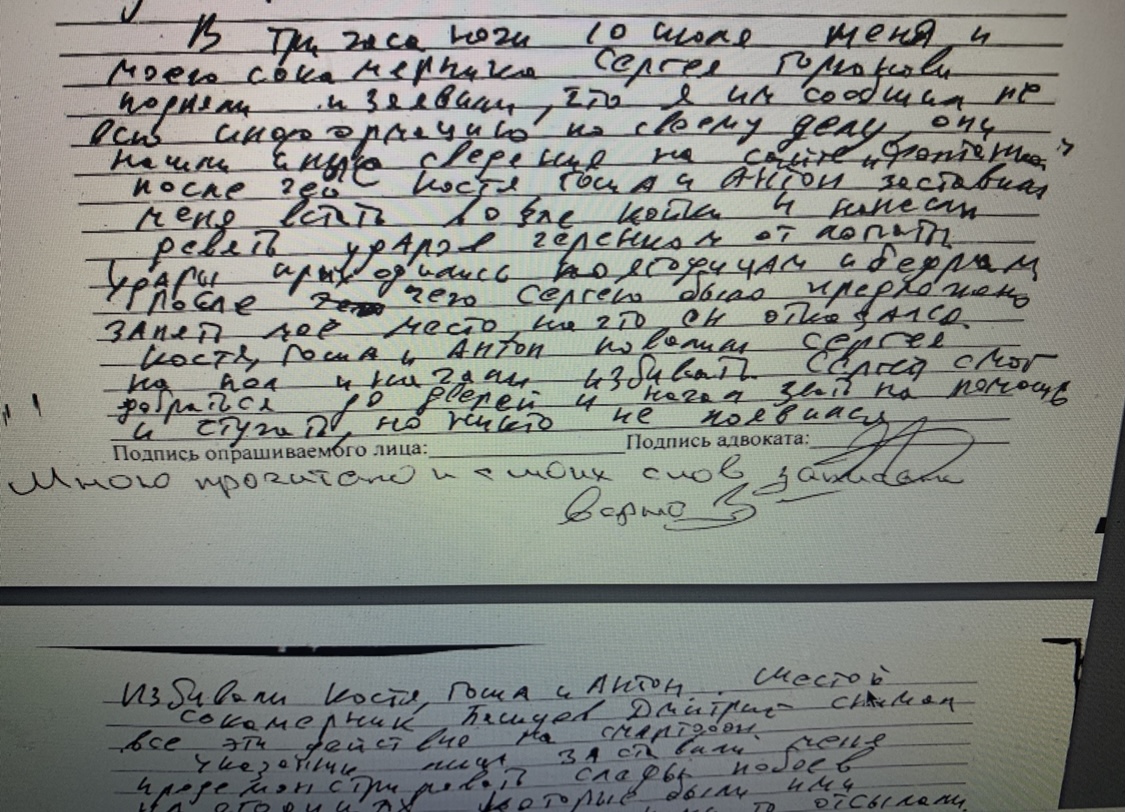 В три часа ночи 10 июля меня и
моего сокамерника Сергея
подняли и заявили, что я им сообщил не
всю информацию по своему делу, они
нашли иную сведения на сайте "Фонтанка"
после чего Костя Гоша и Антон заставили
меня встать возле койки и нанесли
девять ударов черенком от лопаты
удары приходились по ягодицам и бедрам
После чего Сергею было предложено
занять моё место, на что он отказался.
Костя, Гоша и Антон повалили Сергея
на пол и начали избивать Сергей смог
добраться до дверей и начал звать на помощь
и стучать, но никто не появился
Подпись опрашиваемого лица: Подпись адвоката:
Мною прочитано и с моих слов записано
верно
Избивали Костя, Гоша и Антон. Шестой
сокамерник Дмитрий снимал
все эти действие на смартфон
указанные лица заставили меня
продемонстрировать следы побоев
которые были ими
отсылали